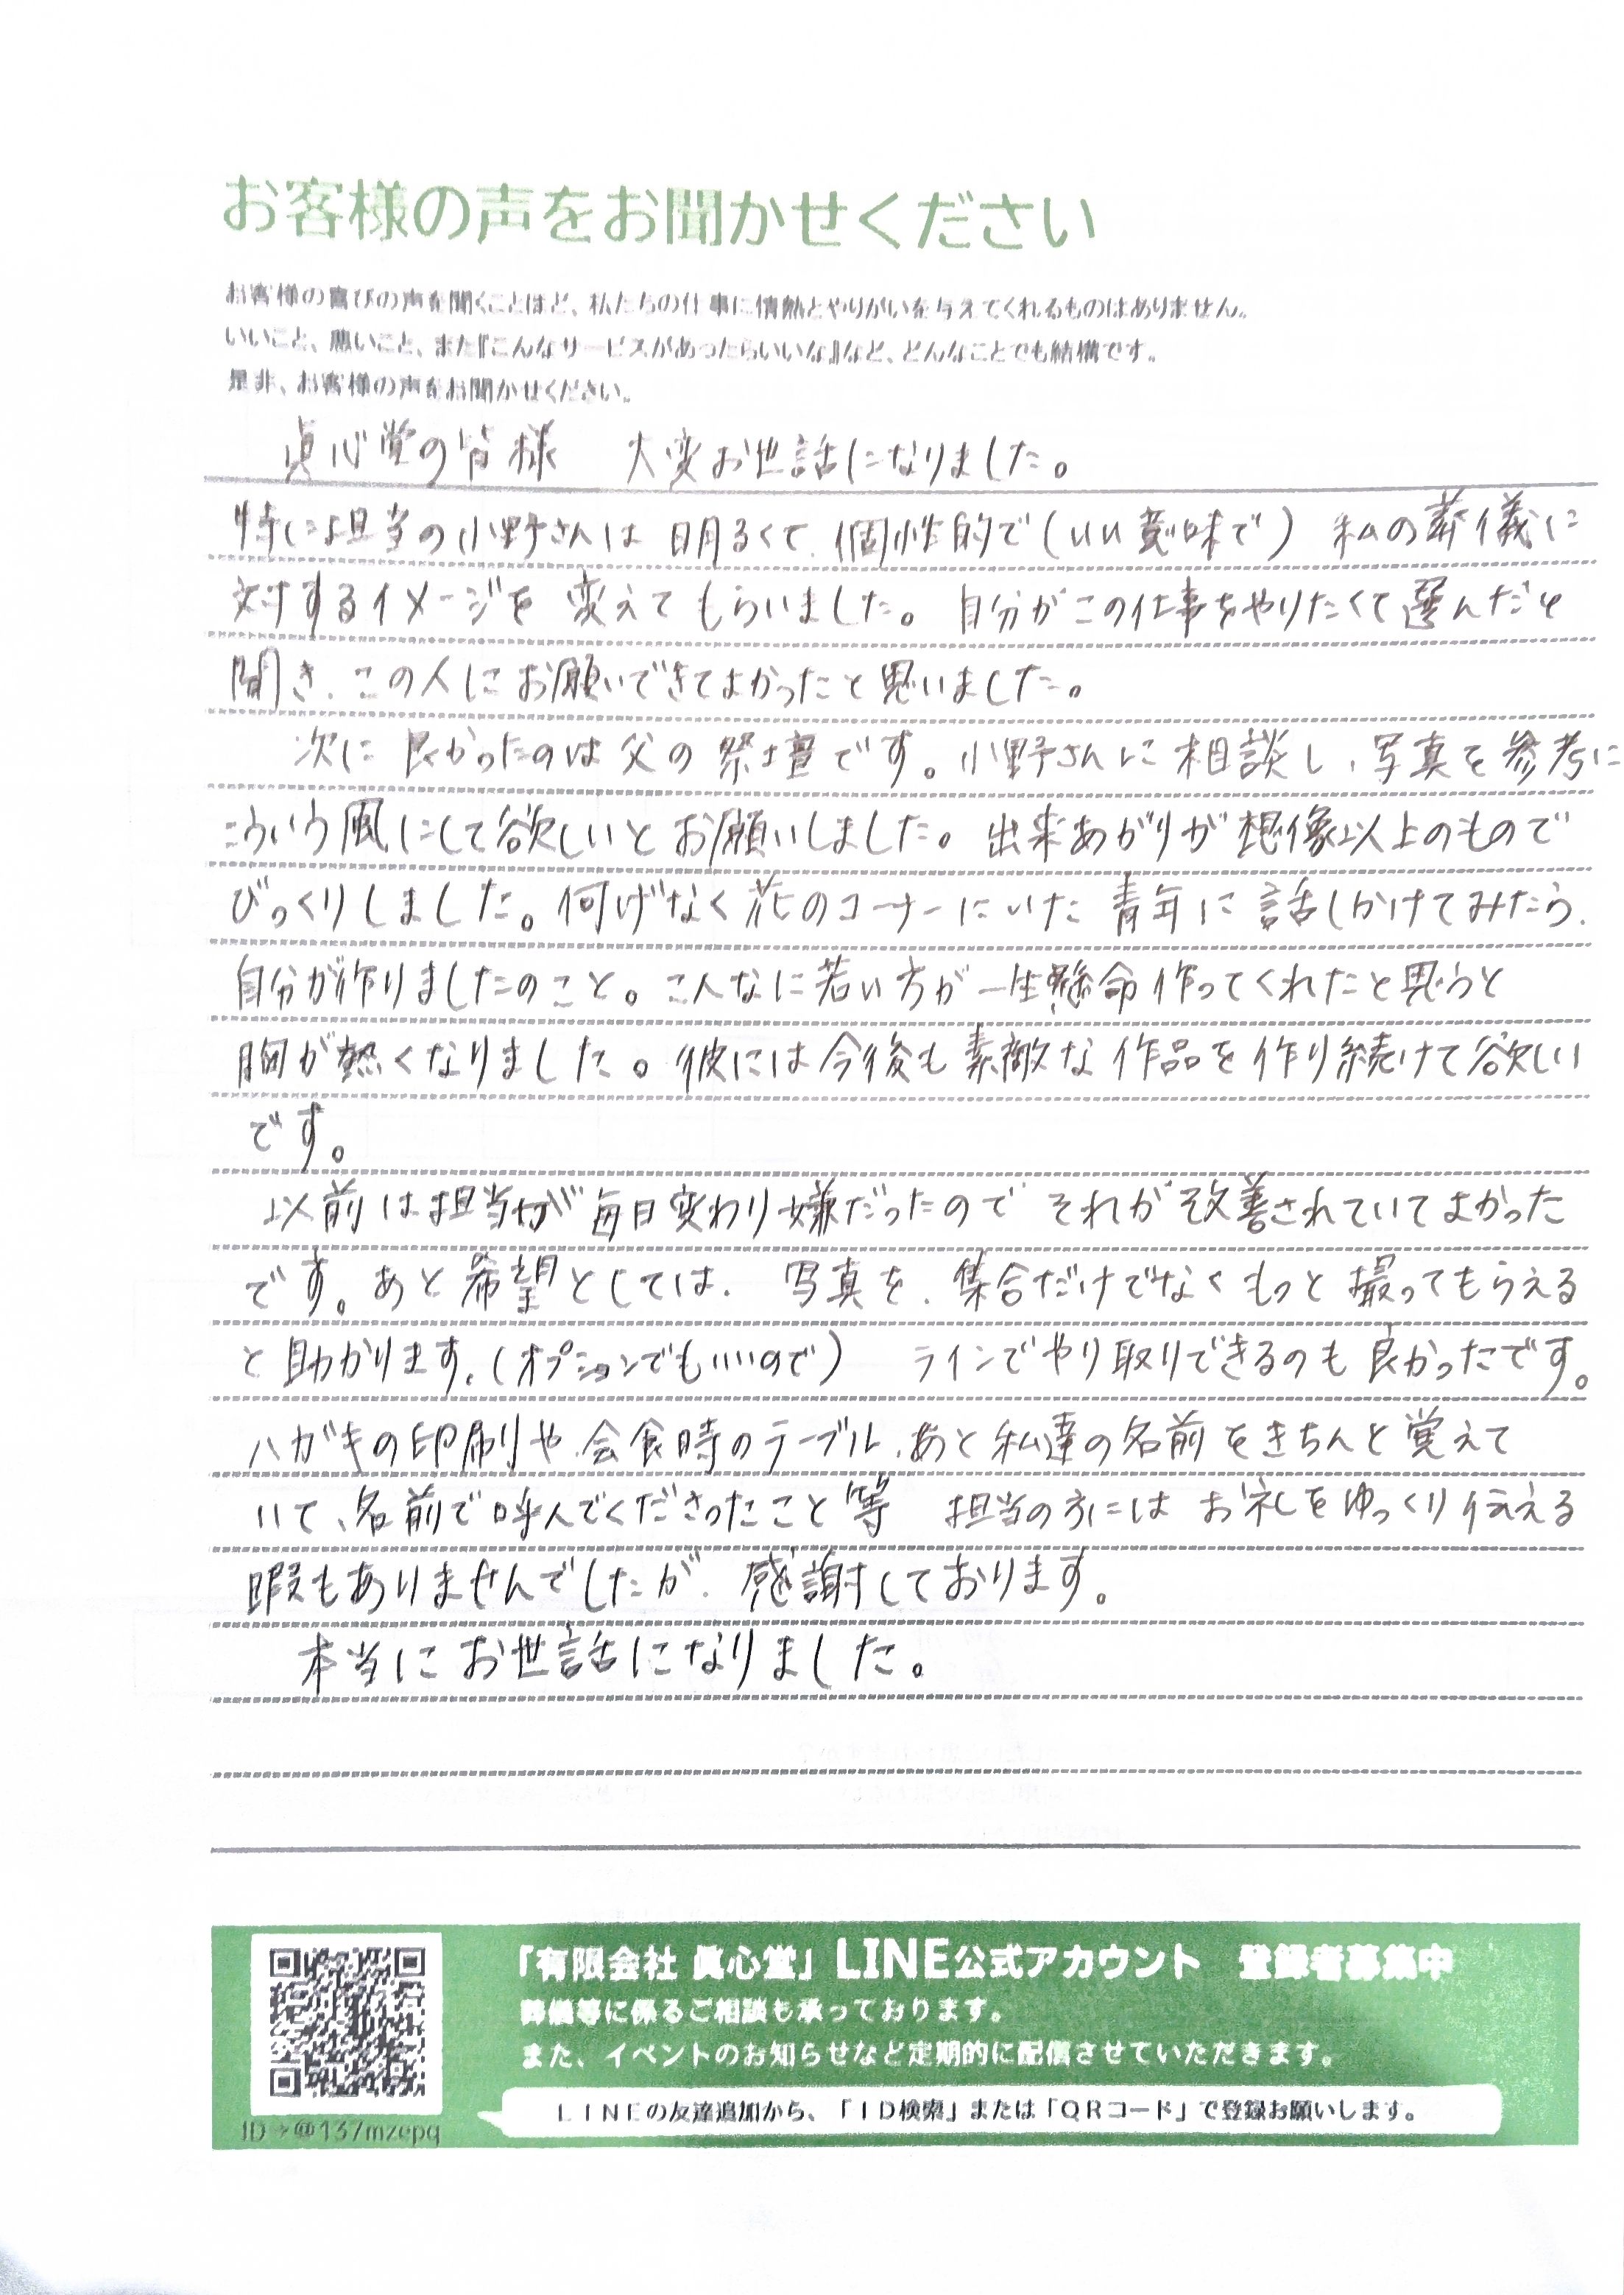 お客様の声をお聞かせください
お客様の喜びの声を聞くことほど、私たちの仕事に情熱とやりがいを与えてくれるものはありません。
いいこと、悪いこと、また『こんなサービスがあったらいいな』など、どんなことでも結構です。
是非、お客様の声をお聞かせください。
眞心堂の皆様 大変お世話になりました。
特に担当の小野さんは明るくて、個性的で(いい意味で) 私の葬儀に
対するイメージを変えてもらいました。自分がこの仕事をやりたくて選んだと
聞き、この人にお願いできてよかったと思いました。
次に良かったのは父の祭壇です。小野さんに相談し、写真を参考に
こういう風にして欲しいとお願いしました。出来あがりが想像以上のもので
びっくりしました。何げなく花のコーナーにいた青年に話しかけてみたら、
自分が作りましたのこと。こんなに若い方が一生懸命作ってくれたと思うと
胸が熱くなりました。彼には今後も素敵な作品を作り続けて欲しい
です。
以前は担当が毎日変わり嫌だったのでそれが改善されていてよかった
です。あと希望としては、写真を、集合だけでなくもっと撮ってもらえる
と助かります。(オプションでもいいので) ラインでやり取りできるのも良かったです。
ハガキの印刷や、会食時のテーブル、あと私達の名前をきちんと覚えて
いて、名前で呼んでくださったこと等 担当の方にはお礼をゆっくり伝える
暇もありませんでしたが、感謝しております。
本当にお世話になりました。
「有限会社 眞心堂」LINE公式アカウント 登録者募集中
葬儀等に係るご相談も承っております。
また、イベントのお知らせなど定期的に配信させていただきます。
LINEの友達追加から、「ID検索」または「QRコード」で登録お願いします。
ID→@137mzepq